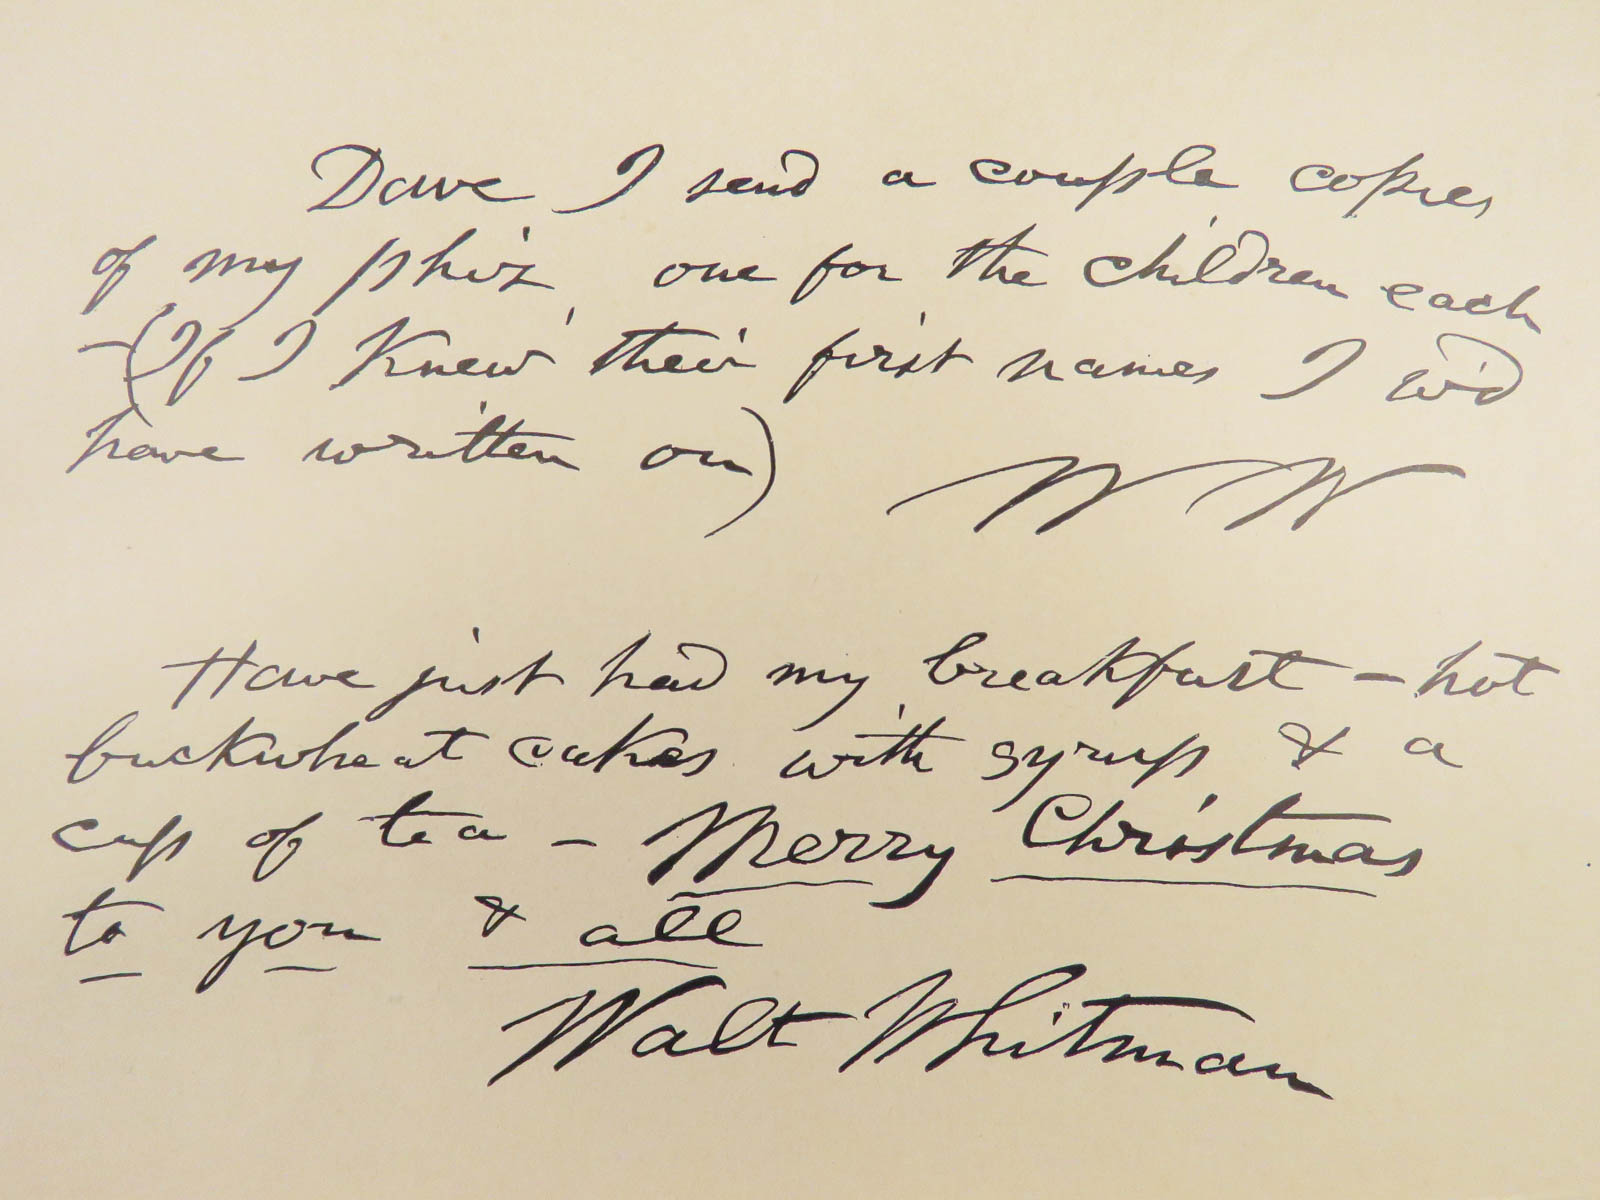 Dave I send a couple copies
of my phiz, one for the children each
—(If I knew their first names I w'd
have written on) W W
Have just had my breakfast — hot
buckwheat cakes with syrup & a
cup of tea — Merry Christmas
to you & all
Walt Whitman